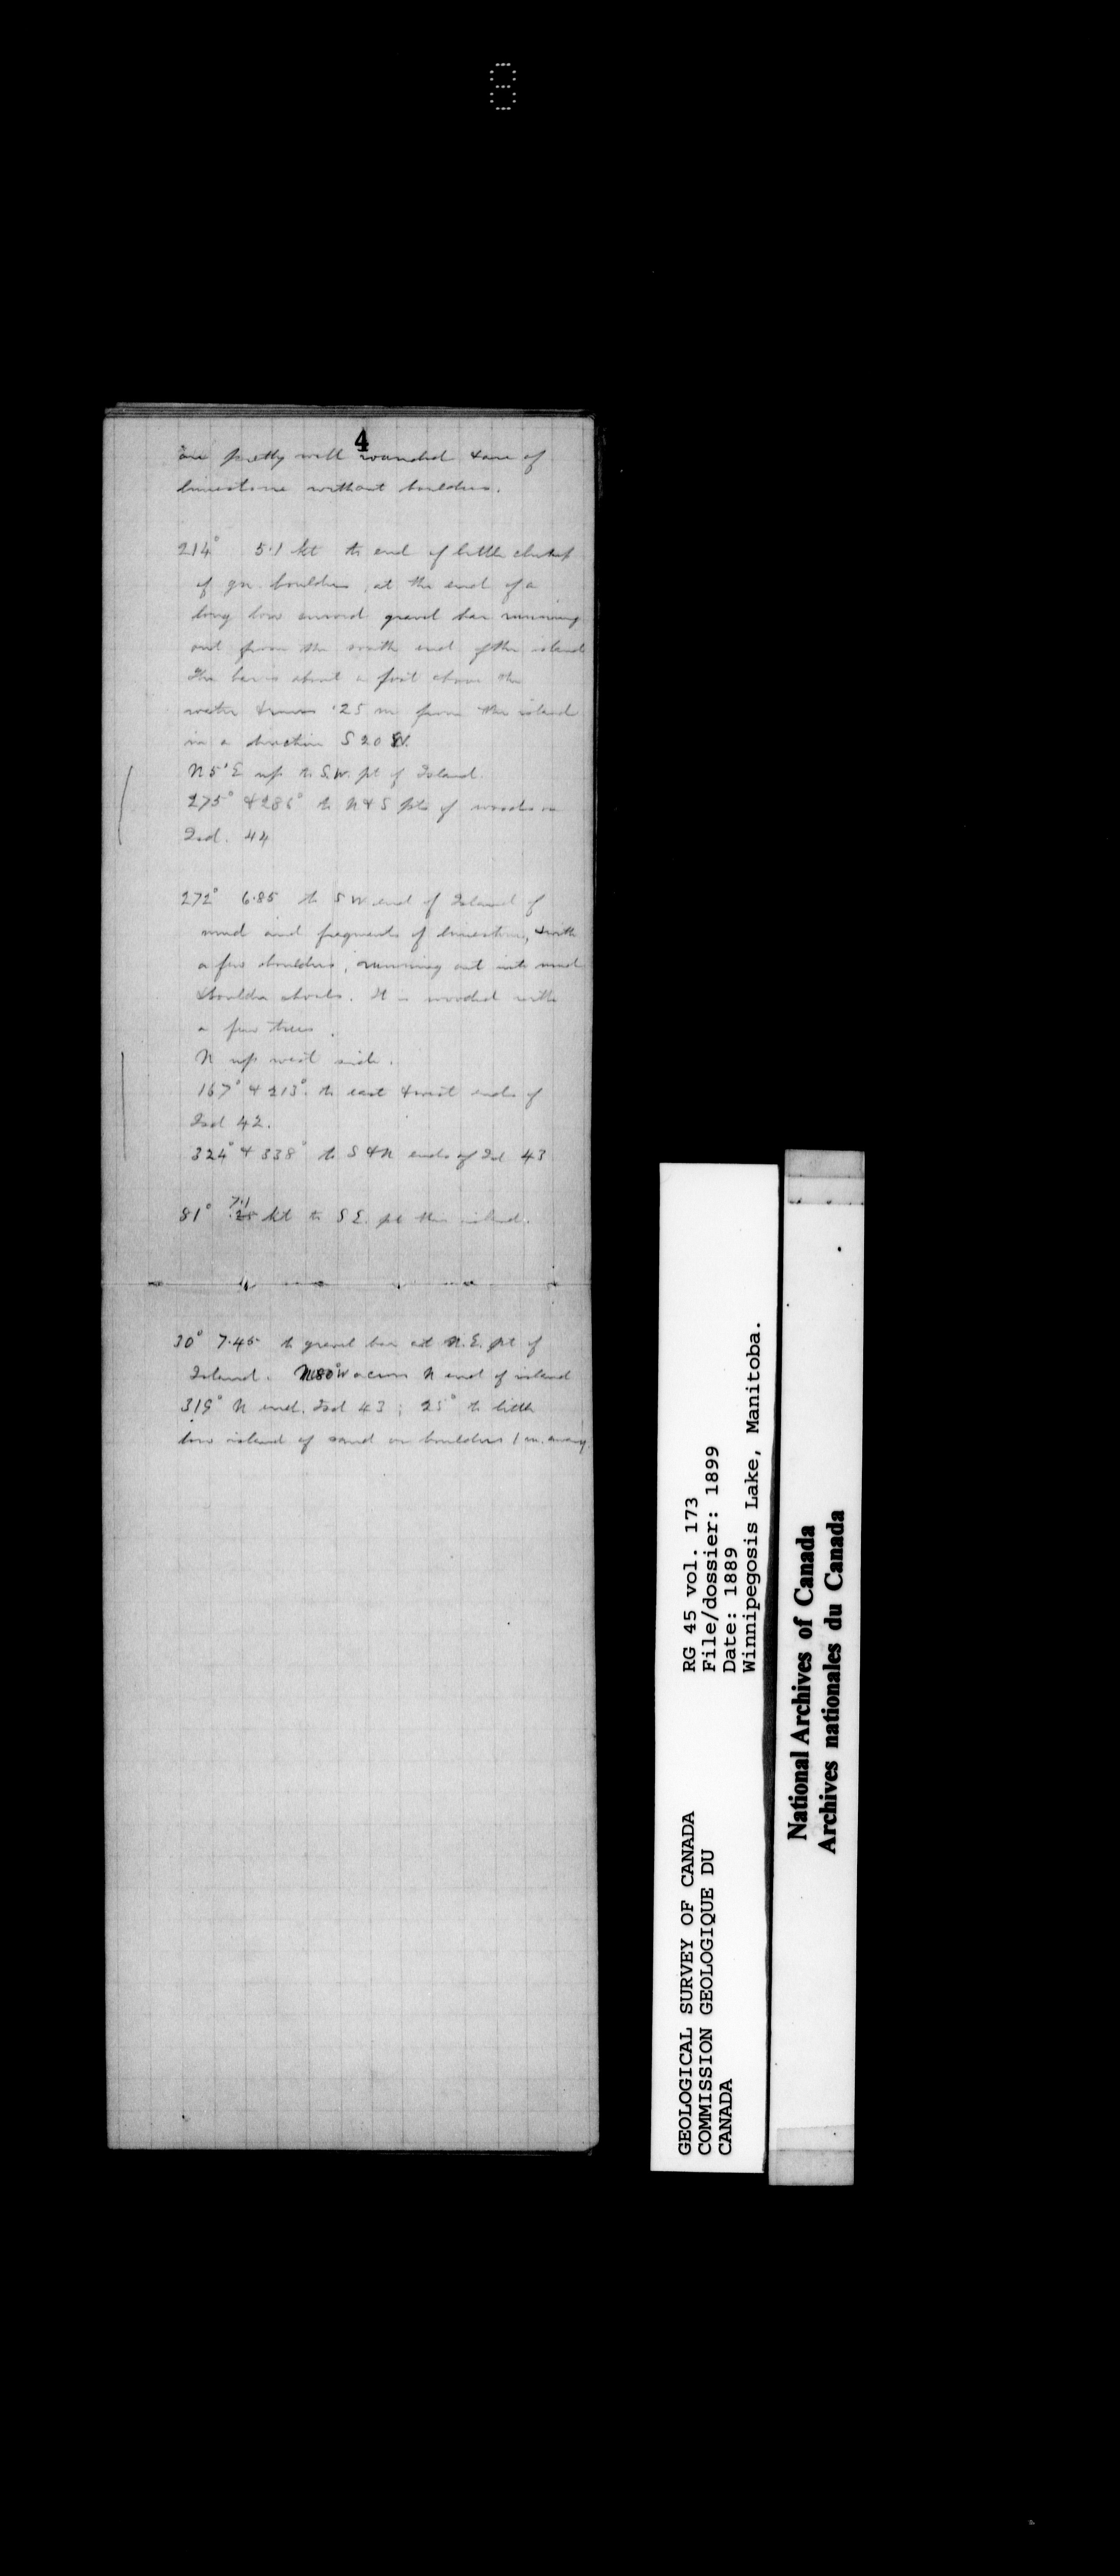 8
4
are pretty well rounded & are of
limestone without boulders.
214° 5.1 kt to end of little
of gn. boulders, at the end of a
long low curved gravel bar running
out from the south end of the island
The bar is about a foot above the
water & runs .25 m from the island
in a direction S 20 W.
N 5° E up to S.W. pt of Island.
275° & 286° to N & S pts of woods on
Isd. 44
272° 6.85 to S W end of Island of
mud and fragments of limestone, & with
a few boulders, running out into mud
& boulder shoals. It is wooded with
a few trees.
N up west side.
167° & 213° to east & west ends of
Isd 42.
324° & 338° to S & N ends of Isd 43
81° 7.1 kt to S E. pt this island.
30° 7.45 to gravel bar at N.E. pt of
Island. N 80° W across N end of island
319° N end. Isd 43; 25° to little
low island of sand or boulders 1 m. away.
RG 45 vol. 173
File/dossier: 1899
Date: 1889
Winnipegosis Lake, Manitoba.
GEOLOGICAL SURVEY OF CANADA
COMMISSION GEOLOGIQUE DU
CANADA
National Archives of Canada
Archives nationales du Canada